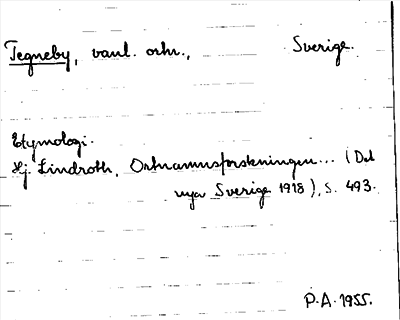 Tegneby, vanl. ortn., Sverige.
Etymologi.
Hj. Lindroth, Ortnamnsforskningen... (Det
nya Sverige 1918), s. 493.
P.A. 1955.